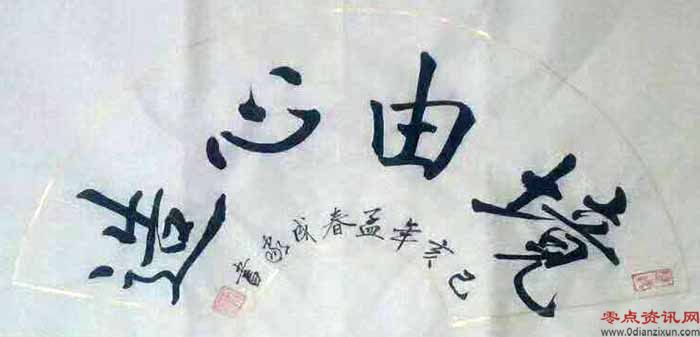 境由心造
己亥年孟春成家書
零点资讯网
www.0dianzixun.com